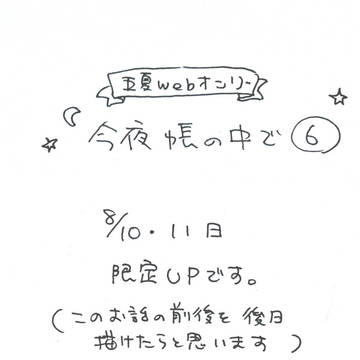 五夏webオンリー
今夜帳の中で⑥
8/10・11日
限定UPです。
(このお話の前後を後日
描けたらと思います)